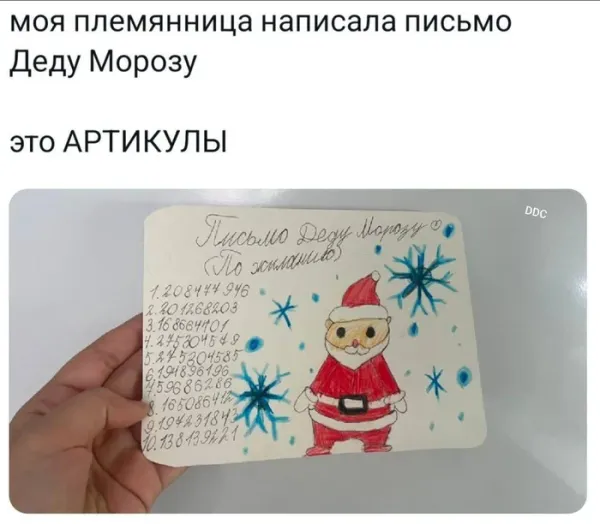 моя племянница написала письмо
Деду Морозу
это АРТИКУЛЫ
DDC
Письмо Деду Морозу
(По желанию)
1. 208477946
2. 201268203
3. 168664101
4. 275304549
5. 275204585
6. 194896196
7. 59686286
8. 165086412
9. 194231847
10. 138139221